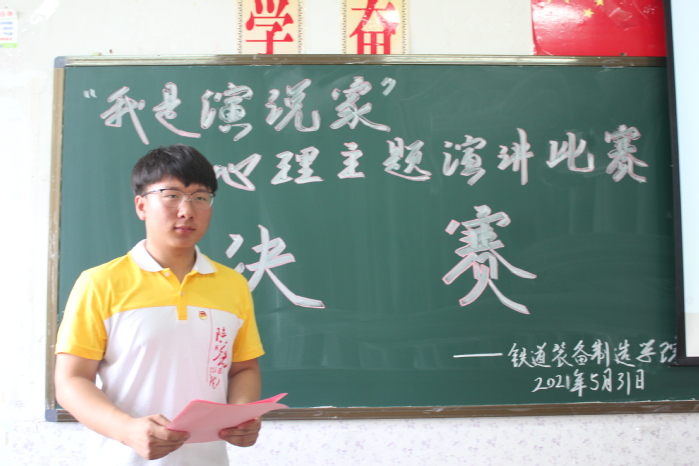 学 奋
“我是演说家”
心理主题演讲比赛
决赛
——铁道装备制造学院
2021年5月31日